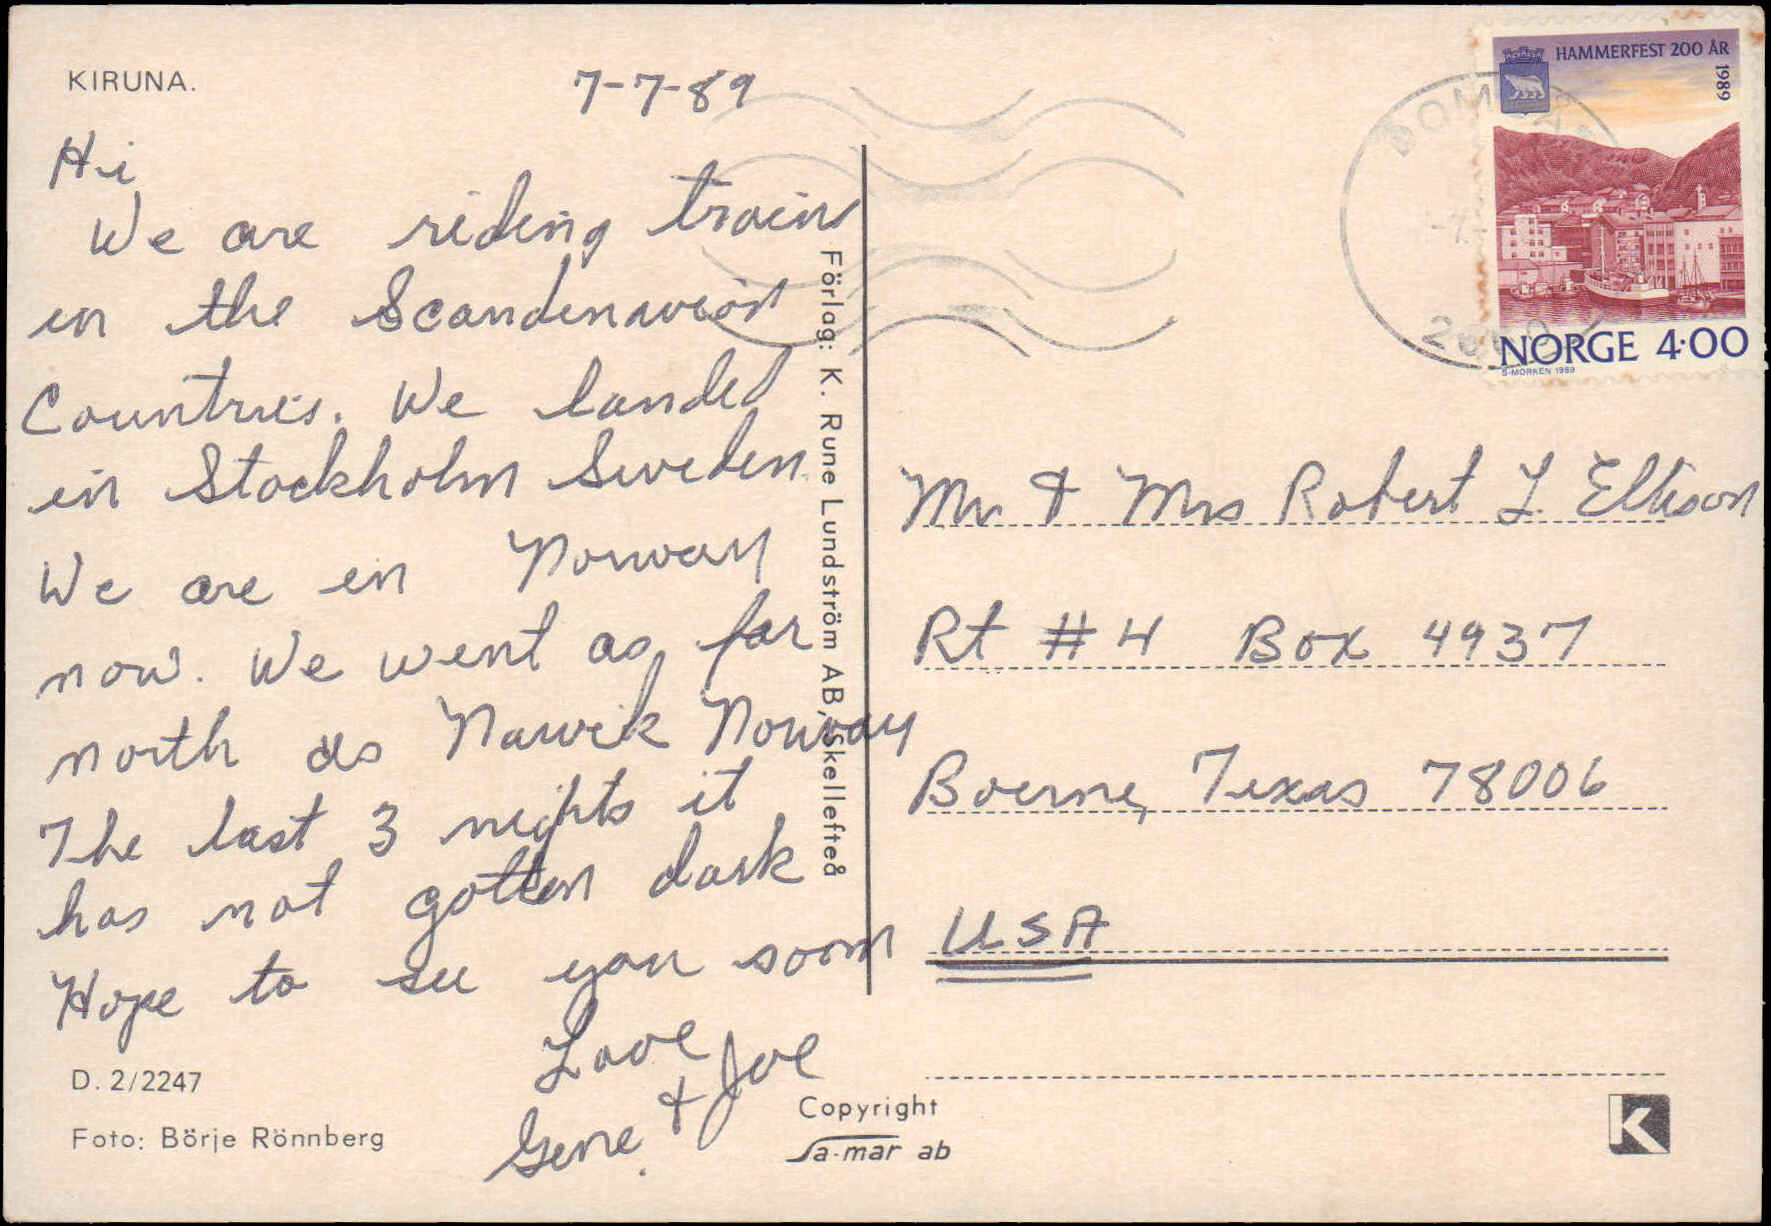 KIRUNA.
7-7-89
Hi
We are riding trains
in the Scandenavian
Countries. We landed
in Stockholm Sweden.
We are in Norway
now. We went as far
north as Narvik Norway
The last 3 nights it
has not gotten dark
Hope to see you soon
Love
Gene & Joe
D. 2/2247
Foto: Börje Rönnberg
Förlag: K. Rune Lundström AB, Skellefteå
Copyright
Sa-mar ab
HAMMERFEST 200 ÅR
1989
NORGE 4·00
S·MORKEN 1989
Mr & Mrs Robert L. Ellison
Rt # 4 Box 4937
Boerne, Texas 78006
USA
K